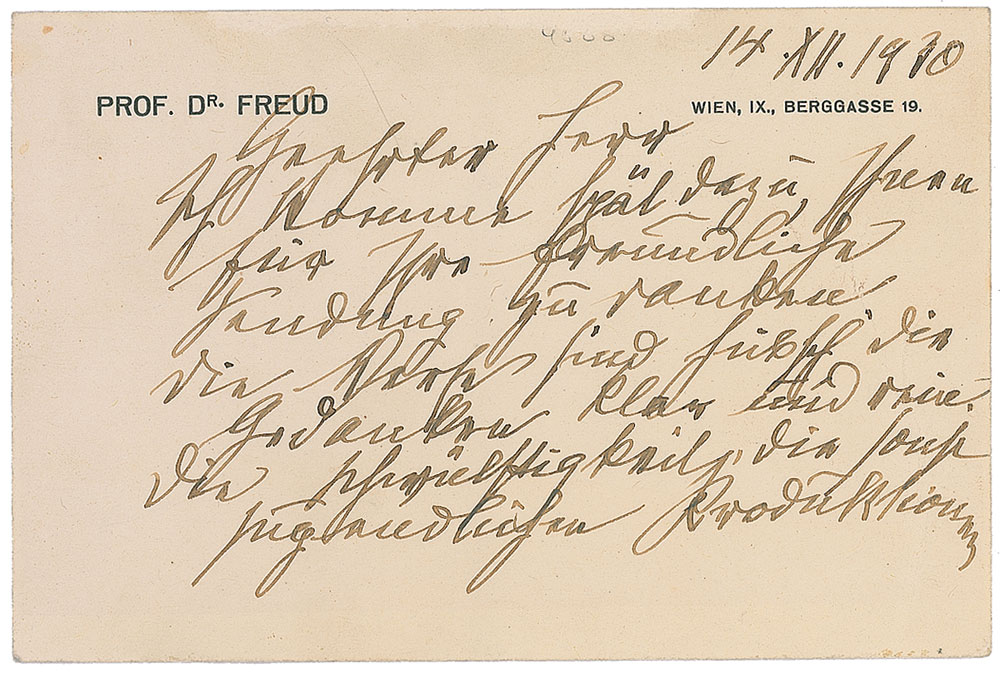 14.XII.1930
PROF. DR. FREUD
WIEN, IX., BERGGASSE 19.
Geehrter Herr
Ich komme spät dazu, Ihnen
für Ihre freundliche
Sendung zu danken
Die Verse sind hübsch die
Gedanken klar und rein.
Die Schwülstigkeit, die sonst
jugendlichen Produktionen